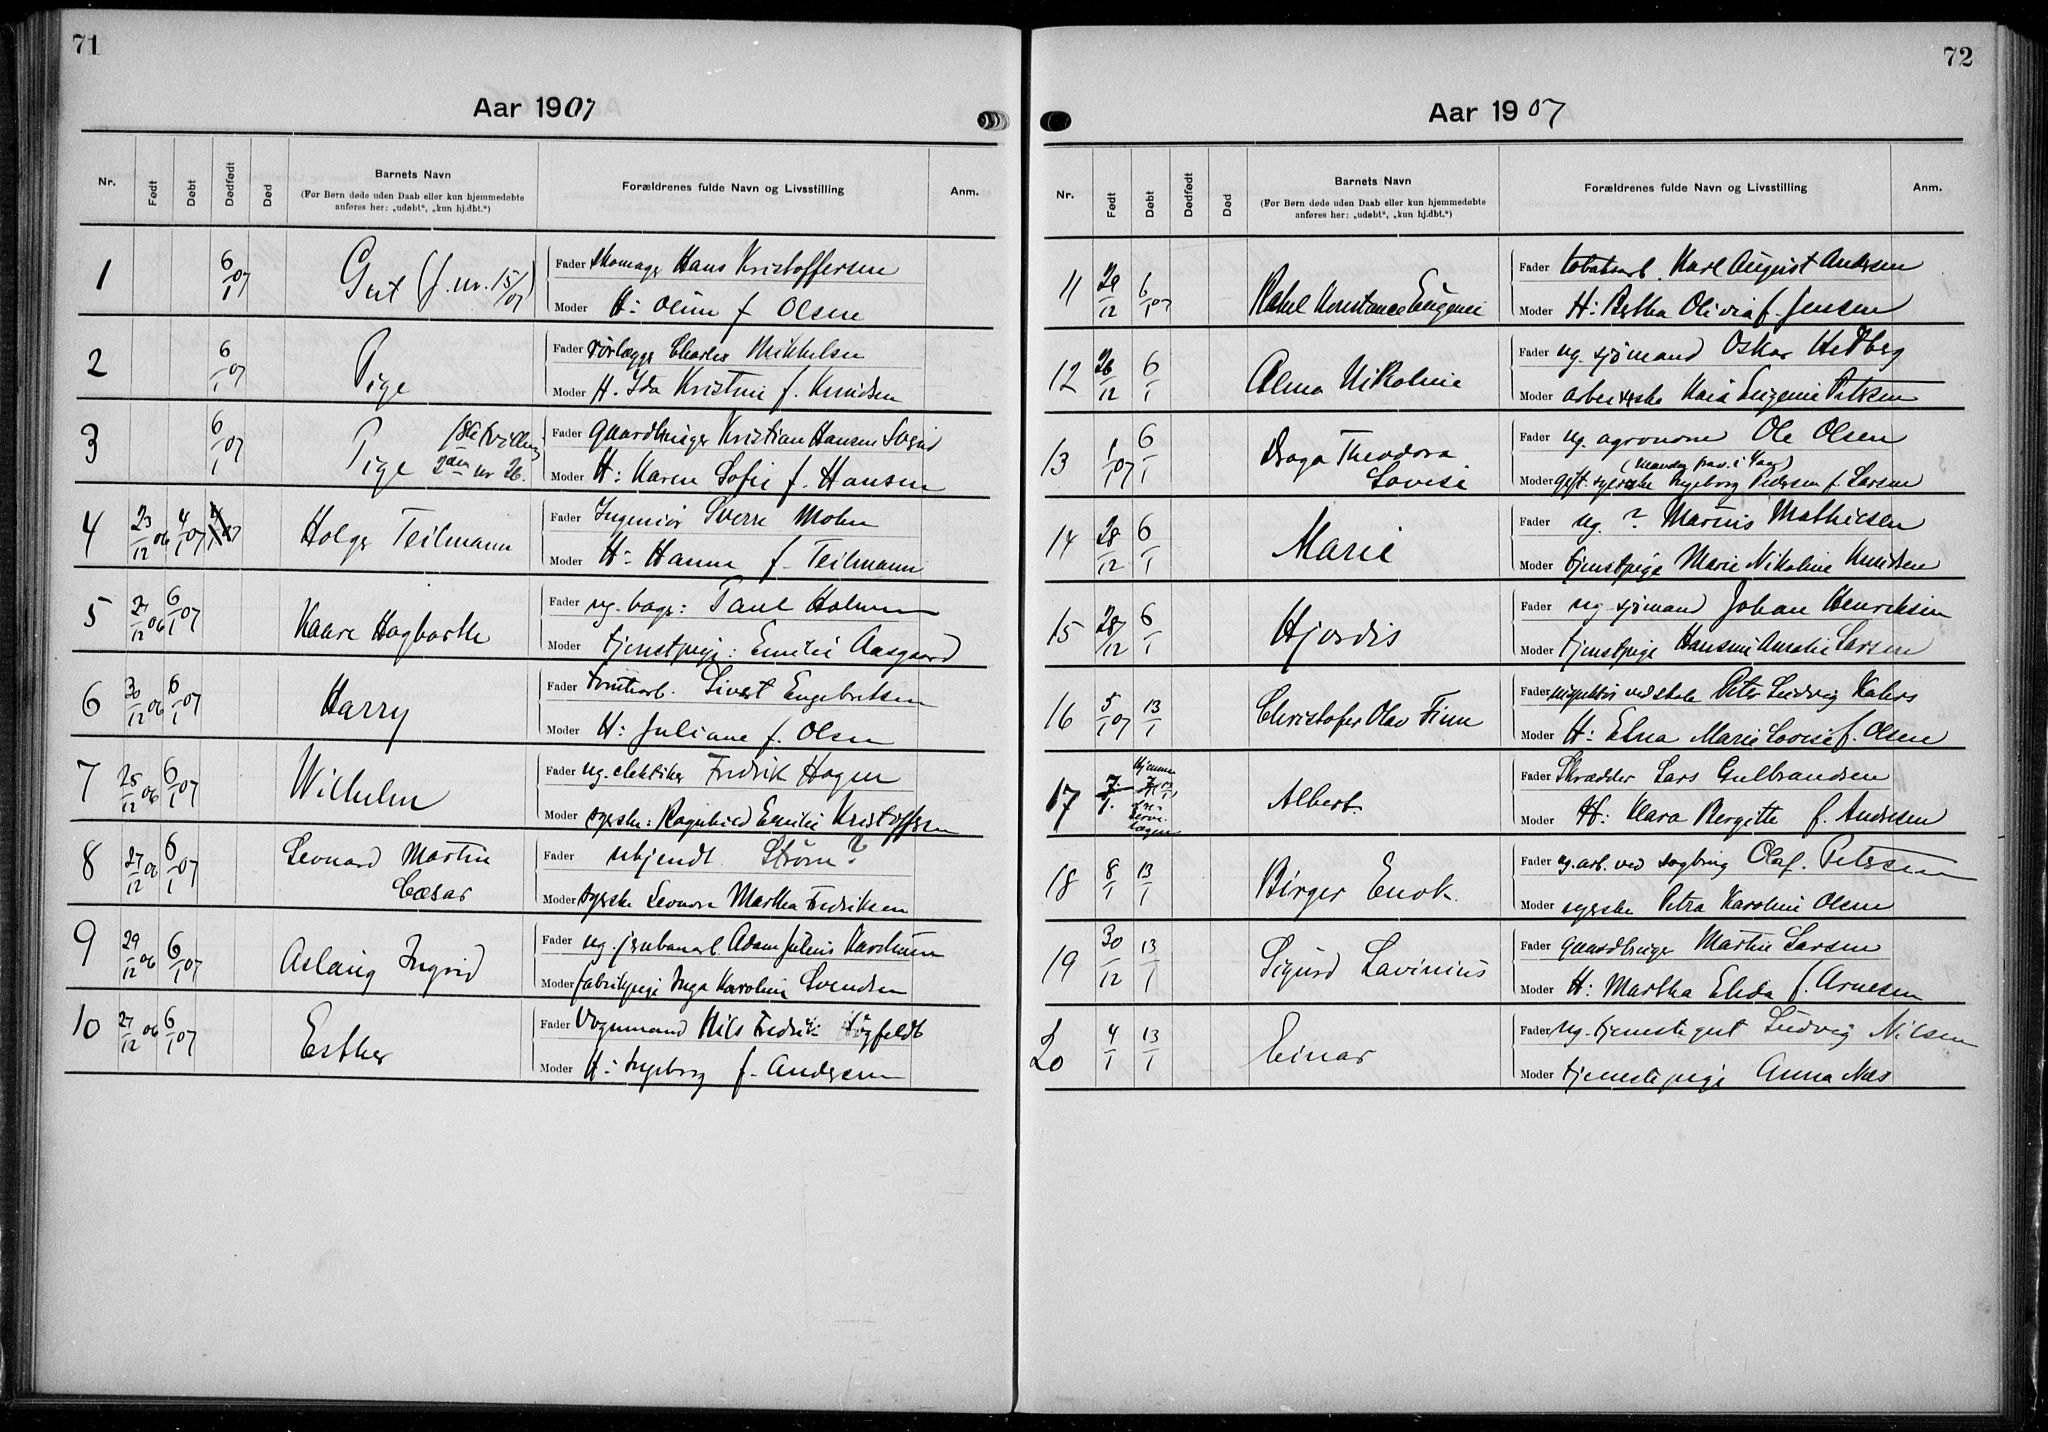 71
Aar 1907
Nr.
Født
Døbt
Dødfødt
Død
Barnets Navn
(For Børn døde uden Daab eller kun hjemmedøbte
anføres her: „udøbt“, „kun hj.dbt.“)
Forældrenes fulde Navn og Livsstilling
Anm.
1 6/1 07 Gut (f. nr. 15/07)
Fader Skomager Hans Kristoffersen
Moder H: f Olsen
2 6/1 07 Pige
Fader rørlægger Charles Mikkelsen
Moder H. Ida Kristine f. Knudsen
3 6/1 07 Pige
2den nr 26.
Fader Gaardbruger Kristian Hansen
Moder H: Karen Sofie f. Hansen
4 23/12 06 4/1 07 Holger Teilmann
Fader Ingeniør Sverre Mohn
Moder H: Hanna f. Teilmann
5 21/12 06 6/1 07 Kaare Hagbarth
Fader ug. bager: Paul Holmen
Moder tjenstpige: Emilie Aasgaard
6 30/12 06 6/1 07 Harry
Fader tomtearb. Sivert Engebretsen
Moder H: Juliane f. Olsen
7 25/12 06 6/1 07 Wilhelm
Fader ug. elektiker Fredrik Hagen
Moder syerske: Ragnhild Emilie Kristoffersen
8 27/12 06 6/1 07 Leonard Martin
Cæsar
Fader ubekjendt Strøm?
Moder syerske Leonora Martha Fredriksen
9 29/12 06 6/1 07 Aslaug Ingrid
Fader ug. jernbanearb. Adam Julius
Moder fabrikpige Inga Karoline Svendsen
10 27/12 06 6/1 07 Esther
Fader Vognmand Nils Fredrik Høgfeldt
Moder H: Ingeborg f. Andersen
72
Aar 1907
Nr.
Født
Døbt
Dødfødt
Død
Barnets Navn
(For Børn døde uden Daab eller kun hjemmedøbte
anføres her: „udøbt“, „kun hj.dbt.“)
Forældrenes fulde Navn og Livsstilling
Anm.
11 6/1 07 Rakel Konstance Eugenie
Fader tobaksarb. Karl August Andersen
Moder H: Bertha Olivia f. Jensen
12 26/12 6/1 Alma Nikoline
Fader ug. sjømand Oskar Hedberg
Moder arbeiderske Eugenie Petersen
13 1/1 07 6/1 Draga Theodora
Lovise
Fader ug. agronom Ole Olsen
Moder gift. syerske Ingeborg Pedersen f. Larsen
14 28/12 6/1 Marie
Fader ug. ? Marius Mathiesen
Moder tjenstpige Marie Nikoline Knudsen
15 28/12 6/1 Hjordis
Fader ug sjømand Johan Henriksen
Moder tjenstpige Hansine Amalie Larsen
16 5/1 07 13/1 Christofer Olav Finn
Fader inspektør ved skole Peter Ludvig
Moder H: Elna Marie Lovise f. Olsen
17 7/1. Hjemme Albert.
Fader Skrædder Lars Gulbrandsen
Moder H: Klara Bergitte f. Andresen
18 8/1 13/1 Birger Enok.
Fader ug. arb. ved sagbrug Olaf. Petersen
Moder syerske Petra Karoline Olsen
19 30/12 13/1 Sigurd Lavinius
Fader gaardbruger Martin Larsen
Moder H: Martha Elida f. Arnesen
20 4/1 13/1 Einar
Fader ug. tjenestegut Ludvig Nilsen
Moder tjenestepige Anna Næs